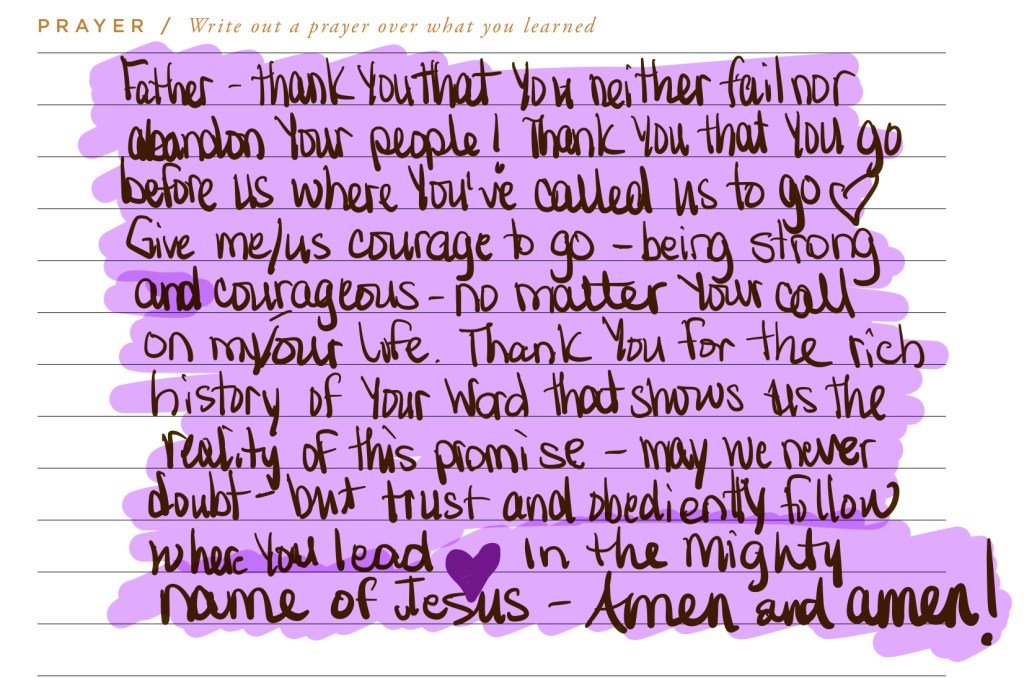 PRAYER / Write out a prayer over what you learned
Father - thank You that You neither fail nor
abandon Your people! Thank You that You go
before us where You've called us to go ♡
Give me/us courage to go - being strong
and courageous - no matter Your call
on my/our life. Thank You for the rich
history of Your Word that shows us the
reality of this promise - may we never
doubt - but trust and obediently follow
where You lead 💜 In the Mighty
name of Jesus - Amen and amen!